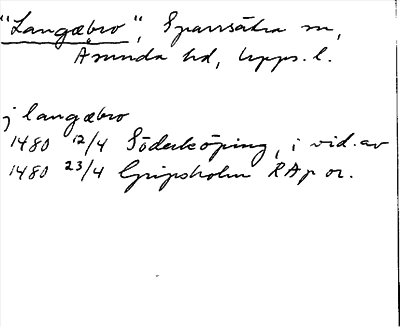 "Langæbro", Sparrsätra sn,
Åsunda hd, Upps. l.
j langæbro
1480 12/4 Söderköping, i vid. av
1480 23/4 Gripsholm RAp or.